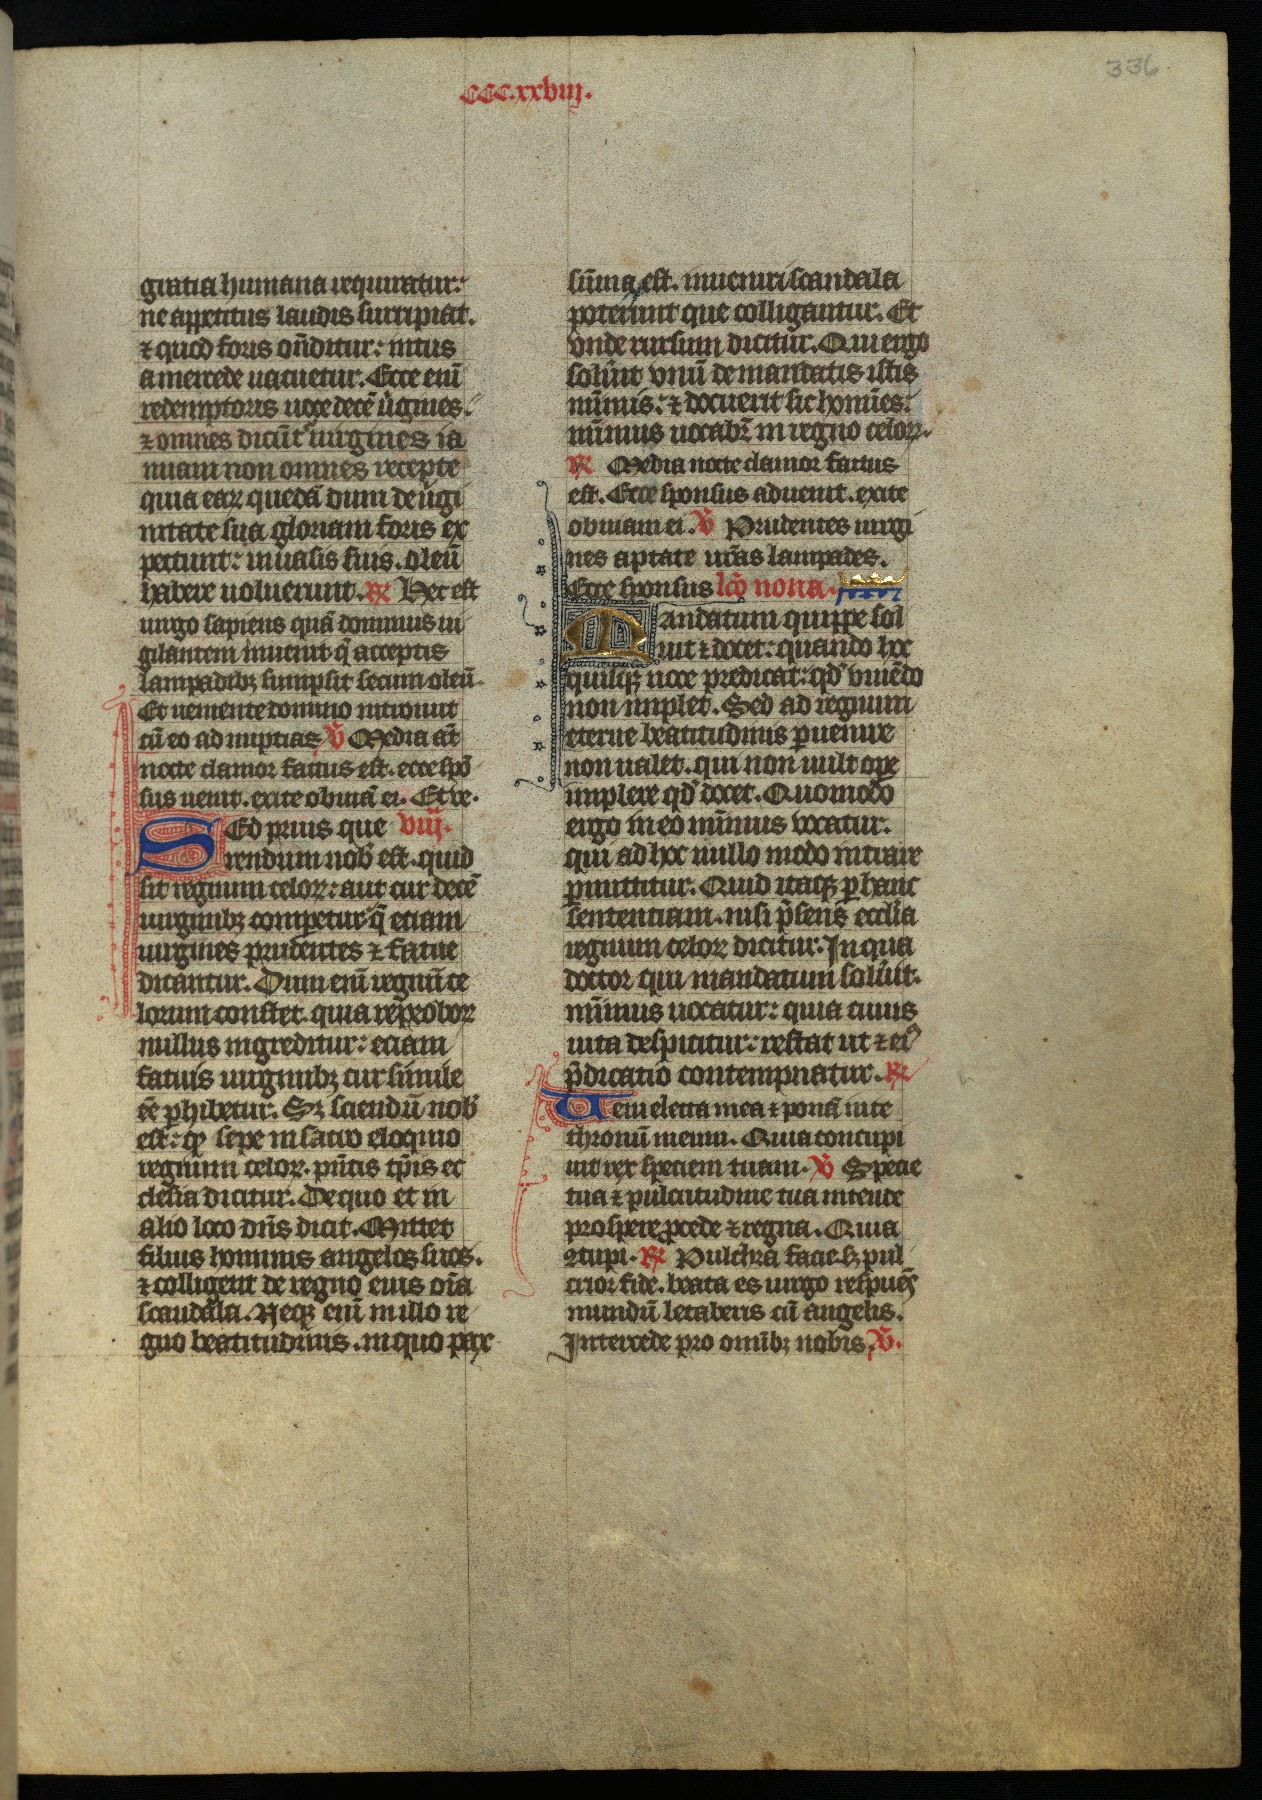 336.
CCC.xxviij.
gratia humana requiratur:
ne appetitus laudis surripiat.
⁊ quod foris oñditur: intus
a mercede uacuetur. Ecce enī
redemptoris uoce decē ūgines.
⁊ omnes dicūt᷑ uirgines ia
nuam non omnes recepte
quia eaꝝ quedā dum de ūgi
nitate sua gloriam foris ex
petunt: in uasis suis. oleū
habere noluerunt. ℟ Hec est
uirgo sapiens quā dominus ui
gilantem inuenit q̄ acceptis
lampadibꝫ sumpsit secum oleū.
Et ueniente domino introiuit
cū eo ad nuptias ℣ Media aūt
nocte clamor factus est. ecce spō
sus uenit. exite obuiā ei. Et ue.
Sed prius que viij.
rendum nob̄ est. quid
sit regnum celoꝝ: aut cur decē
uirginibꝫ comperetur q̄ etiam
uirgines prudentes ⁊ fatue
dicantur. Dum enī regnū ce
lorum constet. quia reproboꝝ
nullus ingreditur: etiam
fatuis uirginibꝫ cur simile
eē ꝑhibetur. Sꝫ sciendū nob̄
est: qꝫ sepe in sacro eloquio
regnum celoꝝ. p̄ntis tp̄is ec
clesia dicitur. De quo et in
alio loco dn̄s dicit. Mittet
filius hominis angelos suos.
⁊ colligent de regno eius oīa
scandala. Neqꝫ enī in illo re
gno beatitudinis. in quo pax
sūma est. inueniri scandala
poterunt que colligantur. Et
vnde rursum dicitur. Qui ergo
soluīt vnū de mandatis istis
mīmis: ⁊ docuerit sic homīes:
mīmus uocab᷑ in regno celoꝝ.
℟ Media nocte clamor factus
est. Ecce sponsus aduenit. exite
obuiam ei. ℣ Prudentes uirgi
nes aptate ur̄as lampades.
Ecce sponsus lcō nona.
Mandatum quippe sol
uit ⁊ docet: quando hoc
quisqꝫ uoce predicat: qd̄ viuēdo
non implet. Sed ad regnum
eterne beatitudinis ꝑuenire
non ualet. qui non uult oꝑe
implere qd̄ docet. Quomodo
ergo in eo mīmus vocatur.
qui ad hoc nullo modo intrare
ꝑmittitur. Quid itaqꝫ ꝑ hanc
sententiam. nisi p̄sens ecclīa
regnum celoꝝ dicitur. In qua
doctor qui mandatum soluīt.
mīmus uocatur: quia cuius
uita despicitur: restat ut ⁊ eiꝰ
p̄dicatio contempnatur. ℟
Veni electa mea ⁊ ponā in te
thronū meum. Quia concupi
uit rex speciem tuam. ℣ Specie
tua ⁊ pulcritudine tua intende
prospere ꝓcede ⁊ regna. Quia
ꝯcupi. ℟ Pulchra facie. sꝫ pul
crior fide. beata es uirgo respuēs
mundū letaberis cū angelis.
Intercede pro omībꝫ nobis. ℣.